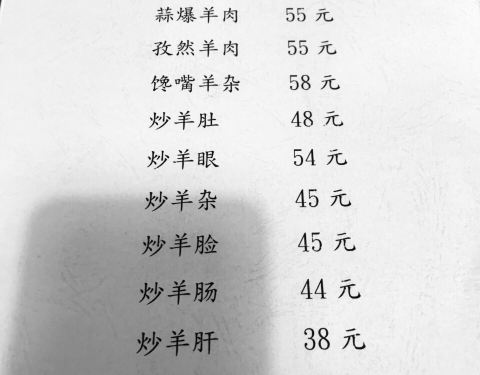 蒜爆羊肉 55 元
孜然羊肉 55 元
馋嘴羊杂 58 元
炒羊肚 48 元
炒羊眼 54 元
炒羊杂 45 元
炒羊脸 45 元
炒羊肠 44 元
炒羊肝 38 元